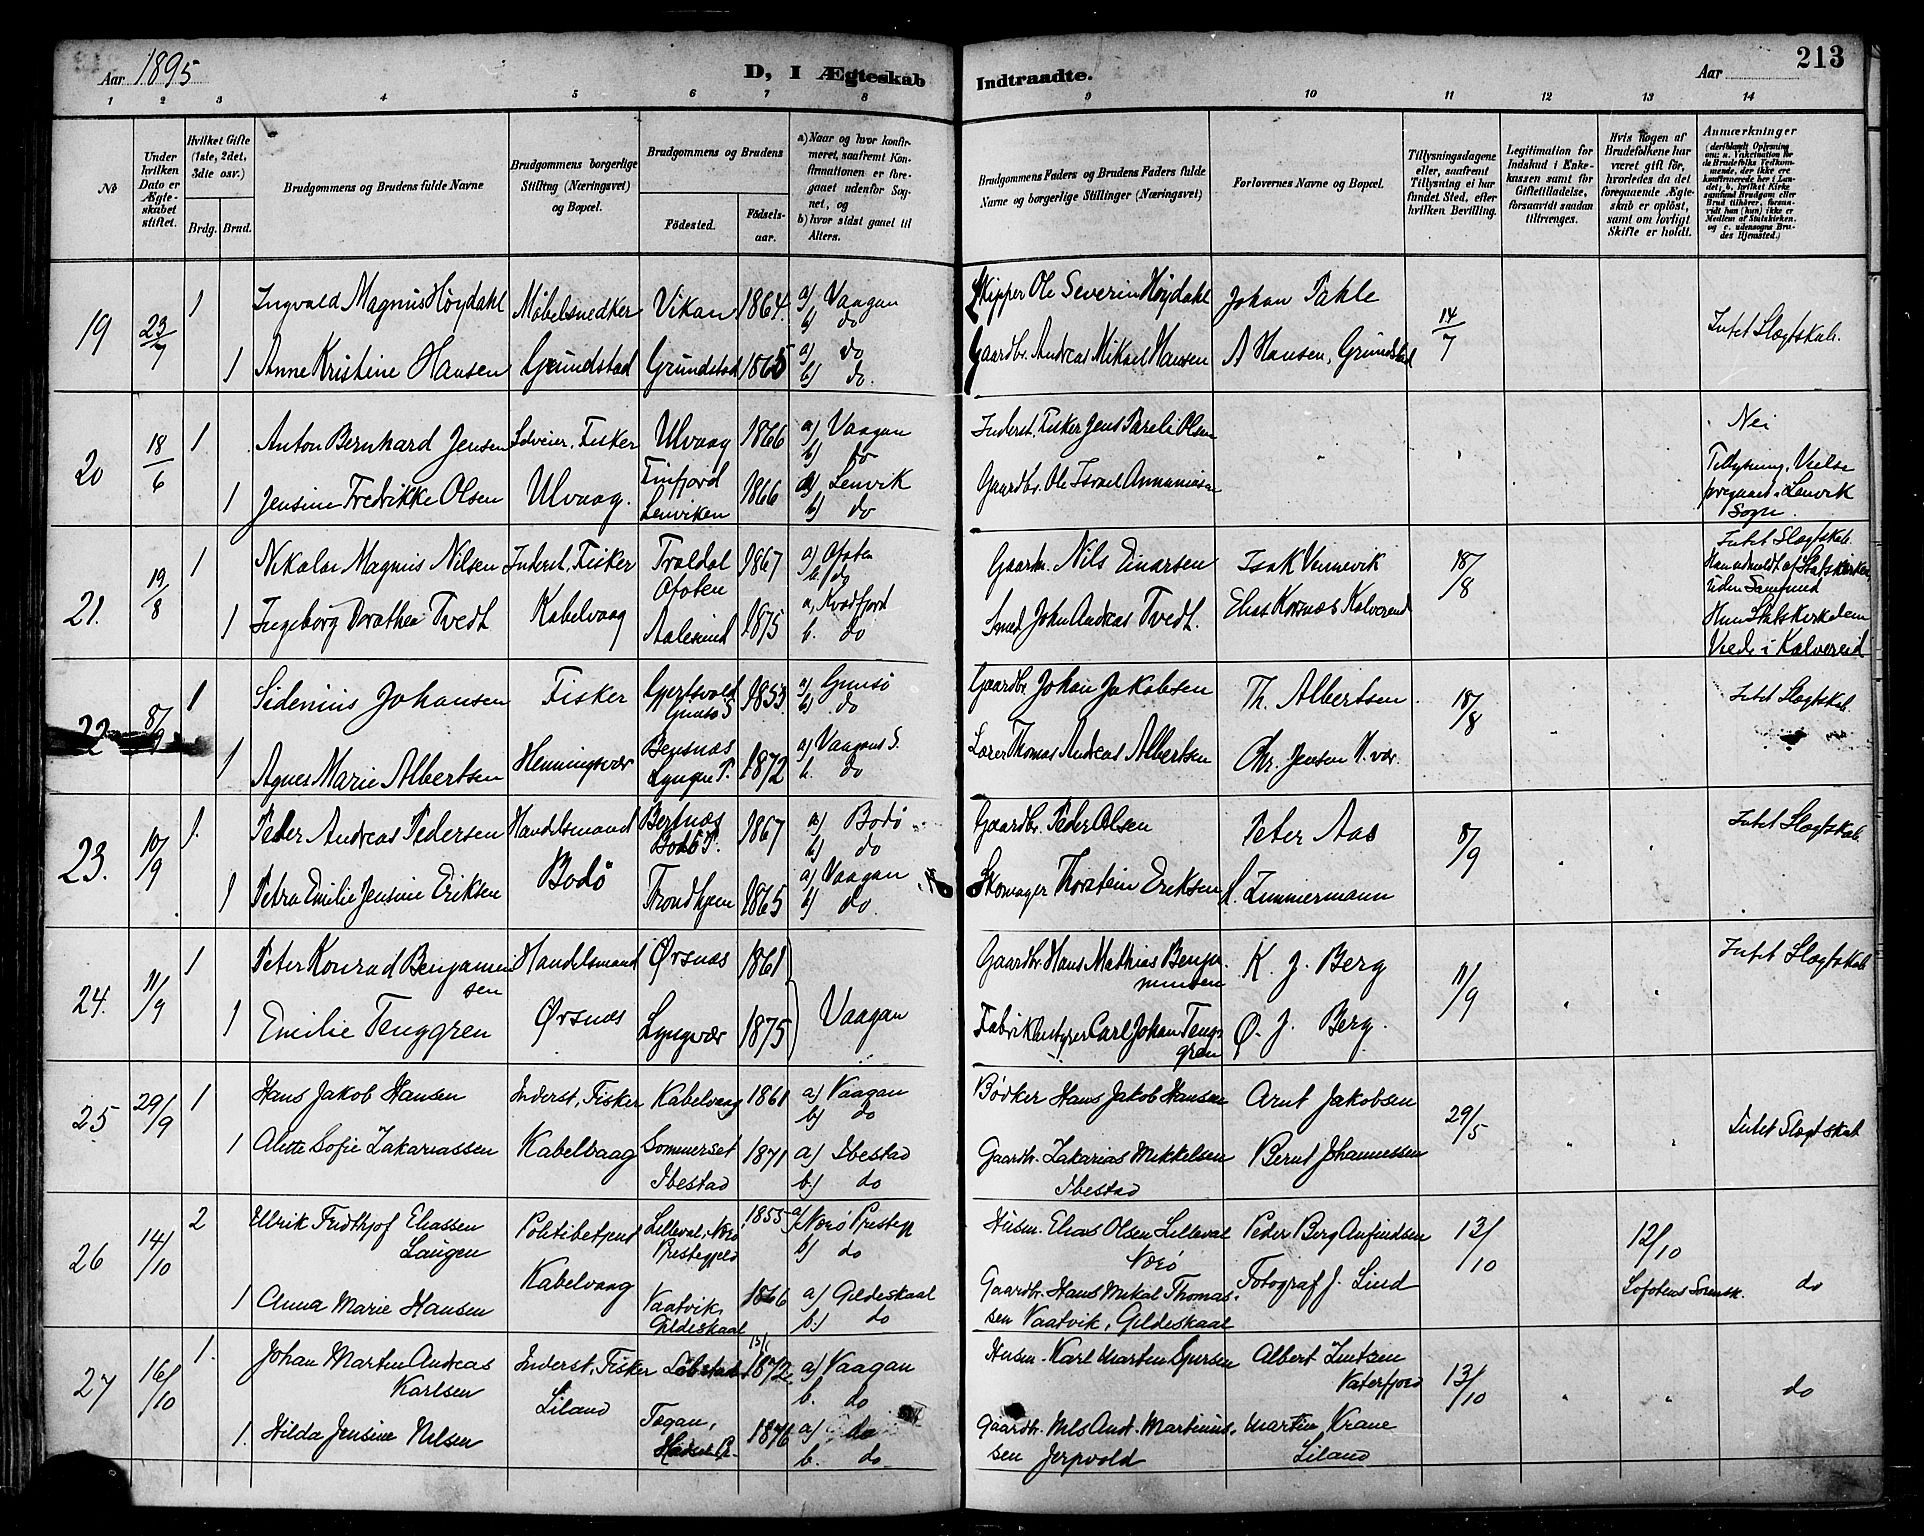 Aar 1895
D, I Ægteskab
Indtraadte.
Aar
213
1 2 3 4 5 6 7 8 9 10 11 12 13 14
No
Under hvilken Dato er Ægteskabet stiftet.
Hvilket Gifte (1ste, 2det, 3die osv.)
Brdg. Brud.
Brudgommens og Brudens fulde Navne
Brudgommens borgerlige Stilling (Næringsvei) og Bopæl.
Brudgommens og Brudens
Fødested.
Fødselsaar.
a) Naar og hvor konfirmeret, saafremt Konfirmationen er foregaaet udenfor Sognet, og
b) hvor sidst gaaet til Alters.
Brudgommens Faders og Brudens Faders fulde Navne og borgerlige Stillinger (Næringsvei)
Forlovernes Navne og Bopæl.
Tillysningsdagene eller, saafremt Tillysning ei har fundet Sted, efter hvilken Bevilling.
Legitimation for Indskud i Enkekassen samt for Giftetilladelse, forsaavidt saadan tiltrænges.
Hvis Nogen af Brudefolkene har været gift før, hvorledes da det foregaaende Ægteskab er opløst, samt om lovligt Skifte er holdt.
Anmærkninger
19 23/7 1 Ingvald Magnus Høydahl Møbelsnedker Vikan 1864 a) Vaagan b) do Skipper Ole Severin Høydahl Johan Pahle 14/7 Intet Slægtskab.
1 Anne Kristine Hansen Grundstad Grundstad 1865 a) do b) do. Gaardbr. Andreas Mikael Hansen A Hansen, Grundstad
20 18/6 1 Anton Bernhard Jensen Selveier. Fisker Ulvaag 1866 a) Vaagan b) do Inderst. Fisker Jens Pareli Olsen Nei
1 Jensine Fredrikke Olsen Ulvaag. Finfjord Lenviken 1866 a) Lenvik b) do Gaardbr. Ole Israel Annaniasen Tillysning. Vielse foregaaet i Lenvik Sogn.
21. 19/8 1 Nikolai Magnus Nilsen Inderst, Fisker Traldal Ofoten 1867 a) Ofoten b) do Gaardm. Nils Einarsen Isak Vennevik 18/8 Intet Slægtskab. Han udmeldt af Statskirken uden Samfund
1 Ingeborg Dorothea Tvedt Kabelvaag Aalesund 1875 a, Kvædfjord b. do Smed John Andreas Tvedt. Elias Kornæs Kalvereid Hun Statskirkelem Viede i Kalvereid
22 8/9 1 Sidenius Johansen Fisker Gjertsvold Gimsø S 1853 a) Gimsø b) do Gaardbr. Johan Jakobsen Th. Albertsen 18/8 Intet Slægtskab.
1 Agnes Marie Albertsen Henningsvær Bensnæs Lyngen P. 1872 a) Vaagans S. b. do Lærer Thomas Andreas Albertsen Chr. Jensen H.vær.
23. 10/9 1. Peder Andreas Pedersen Handelsmand Bertnæs Bodø P. 1867 a) Bodø b) do Gaardbr. Peder Olsen Peter Aas 8/9 Intet Slægtskab.
1 Petra Emilie Jensine Eriksen Bodø Trondhjem 1865 a) Vaagan b) do. Skomager Thorstein Eriksen Zimmermann
24. 11/9 1 Peter Konrad Benjaminsen Handelsmand Ørsnæs 1861 Vaagan Gaardbr. Hans Mathias Benjaminsen K. J. Berg 11/9 Intet Slægtskab
1 Emilie Tenggren Ørsnæs Lyngvær 1875 Fabrikbestyrer Carl Johan Tenggren Ø. J. Berg.
25 29/9 1 Hans Jakob Hansen Inderst, Fisker Kabelvaag 1861 a) Vaagan b) do Bødker Hans Jakob Hansen Arnt Jakobsen 29/5 Intet Slægtskab
1 Alette Sofie Zakariassen Kabelvaag Sommerset Ibestad 1871 a) Ibestad b.) do Gaardbr. Zakarias Mikkelsen Ibestad Bernt Johannessen
26 14/10 2 Ulrik Fridthjof Eliassen Laugen Politibetjent Lilleval, Nærø Prestegjeld 1855 a) Nærø Prestegj b) do Husm. Elias Olsen Lilleval Nærø Peder Berg Anfindsen 13/10 12/10 Lofotens Sorensk. do
1 Anna Marie Hansen Kabelvaag Vaatvik, Gildeskaal 1866 a) Gildeskaal b.) do Gaardbr. Hans Mikal Thomassen Vaatvik, Gildeskaal Fotograf J. Lind
27 16/10 1. Johan Martin Andreas Karlsen Inderst, Fisker 1872 a) Vaagan b. do Husm. Karl Martin Ejersen Albert Lintzen Vaterfjord 13/10 do
1. Hilda Jensine Nilsen Liland 1876 a) do b. do. Gaardbr. Nils And. Martinussen Jerpvold Martin Krane Liland